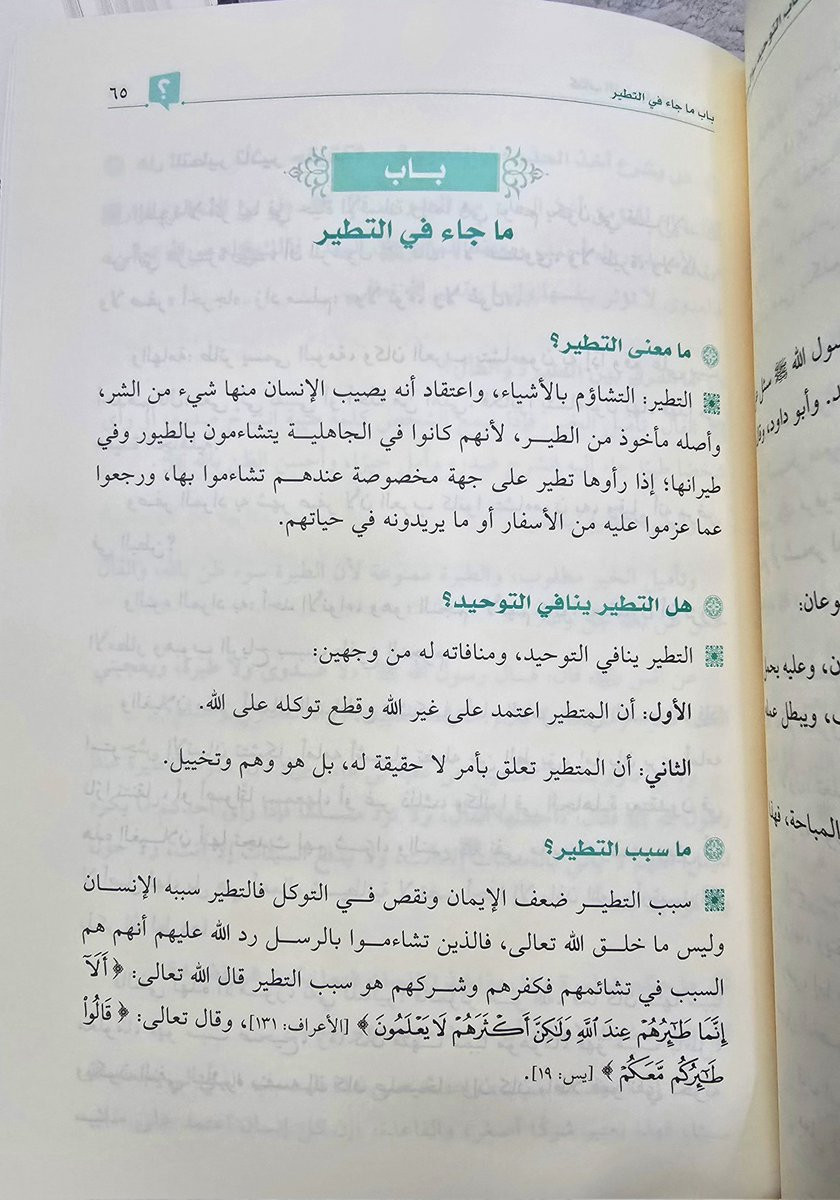 باب ما جاء في التطير
؟
٦٥
بــاب
ما جاء في التطير
ما معنى التطير؟
التطير: التشاؤم بالأشياء، واعتقاد أنه يصيب الإنسان منها شيء من الشر،
وأصله مأخوذ من الطيـر، لأنهم كانوا في الجاهليـة يتشاءمون بالطيور وفي
طيرانها؛ إذا رأوها تطير على جهة مخصوصة عندهـم تشاءموا بها، ورجعوا
عما عزموا عليه من الأسفار أو ما يريدونه في حياتهم.
هل التطير ينافي التوحيد؟
التطير ينافي التوحيد، ومنافاته له من وجهين:
الأول: أن المتطير اعتمد على غير الله وقطع توكله على الله.
الثاني: أن المتطير تعلق بأمر لا حقيقة له، بل هو وهم وتخييل.
ما سبب التطير؟
سبب التطيـر ضعف الإيمان ونقص فـي التوكل فالتطير سببه الإنسـان
وليس ما خلـق الله تعالى، فالذين تشاءمـوا بالرسـل رد الله عليهم أنهم هم
السبب في تشائمهم فكفرهم وشركهم هو سبب التطير قال الله تعالى: ﴿أَلَآ
إِنَّمَا طَٰٓئِرُهُمْ عِندَ ٱللَّهِ وَلَٰكِنَّ أَكْثَرَهُمْ لَا يَعْلَمُونَ﴾ [الأعراف: ١٣١]، وقال تعالى: ﴿قَالُوا۟
طَٰٓئِرُكُم مَّعَكُمْ﴾ [يس: ١٩].
سول الله ﷺ سئل
د. وأبو داود،
وعان:
ن، وعليه
ـ، ويبطل
المباحة،